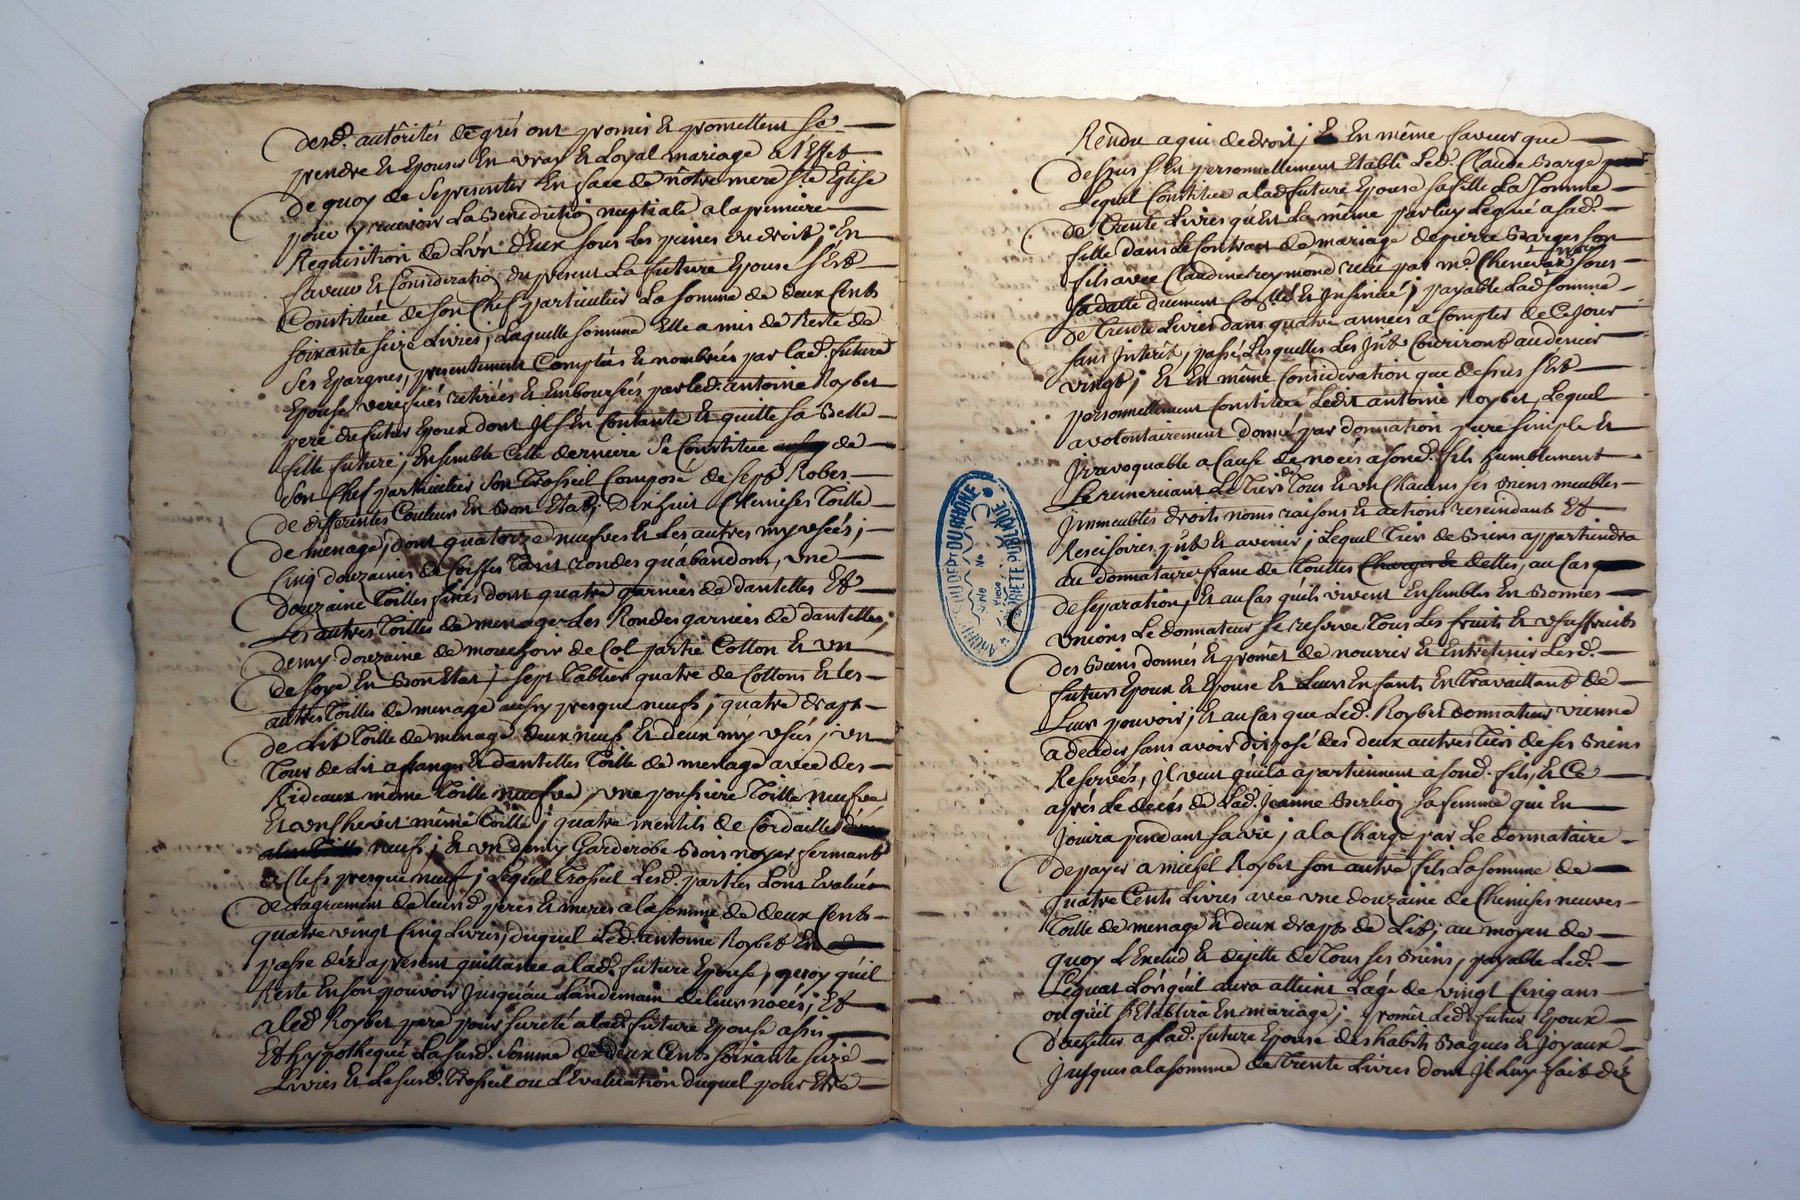 desd. autôrités de grés ont promis et promettent se
prendre et Epouser En vray et Loyal mariage a l'Effet
de quoy de se presenter En face de nôtre mere Ste Eglise
pour recevoir La Benediction nuptiale a la premiere
Requisition de L'un d'Eux sous Les peines de droit; En
faveur et Consideration du present La future Epouse s'Est
Constituée de son Chef particulier La somme de deux Cents
soixante seize Livres; Laquelle somme Elle a mis de Reste de
ses Epargnes, presentement Comptées et nombrées par lad. future
Epouse verifiées retirées et Emboursées par led. antoine Roybet
pere du futur Epoux dont Il s'En Contante et quitte sa Belle
fille future; Ensemble Cette derniere se Constitue de
son Chef particulier son Trosseil Composé de sept Robes
de differentes Couleurs En Bon Etat; Dix huit Chemises Toille
de menage, dont quatorze neufves et Les autres my usées;
Cinq douzaines de Coiffes Tant rondes qu'abandons, une
douzaine Toilles fines dont quatre garnies de dantelles Et
Les autres Toilles de menage Les Rondes garnies de dantelles;
demy douzaine de mouchoirs de Col partie Cotton et un
de soye En Bon Etat; sept Tabliers quatre de Cottons et les
autres Toilles de menage aussy presque neufs; quatre draps
de Lit Toille de menage deux neufs et deux my usés; un
Tour de Lit a franges et dantelles Toille de menage avec des
Rideaux même Toille neufve, une poussiere Toille neufve
Et un Chevet même Toille; quatre mentils de Cordailles
neufs; Et un demy Garderobe Bois noyer fermant
a Clefs presque neuf; Lequel Trosseil Lesd. parties L'ont Evalué
de L'agrement de leursd. peres et meres a la somme de deux Cents
quatre vingt Cinq Livres, duquel Led. antoine Roybet En
passe déz apresent quittance a lad. future Epouse, quoy qu'il
Reste En son pouvoir Jusqu'au Landemain de leurs noces; Et
a led. Roybet pere pour sureté a lad. future Epouse assis
Et hypothequé La susd. somme de deux Cents soixante seize
Livres Et Le susd. Trosseil ou L'Evaluation duquel pour Etre
Rendu a qui de droit; En même faveur que
dessus s'En personnellement Etabli Led. Claude Barge
Lequel Constitue a lad. future Epouse sa fille La somme
de Trente Livres qu'Est La même par luy Legué a sad.
fille dans Le Contract de mariage de pierre Barges son
fils avec Claudine Reymond reçu par me. Chenevas Nore sous
sa datte duement Collé et Insinué; payable Lad. somme
de Trente Livres dans quatre années a Compter de Ce jour
sans Interêt, passé Lesquelles Les Jnts Courriront au denier
vingt; Et En même Consideration que dessus s'Est
personnellement Constitué Ledit antoine Roybet, Lequel
a volontairement donné par donnation pure simple et
Irrevoquable a Cause de noces a sond. fils humblement
Le remerciant Le Tiers de Tous et un Chacuns ses Biens meubles
Jmmeubles droits noms raisons et actions rescindant Et
Rescisoires pnts et avenir; Lequel Tier de Biens appartiendra
au donnataire franc de Touttes Charges de dettes, au Cas
de separation, Et au Cas qu'ils vivent Ensembles En Bonnes
unions Le donnateur se reserve Tous Les fruits et usuffruits
des Biens donnés Et promet de nourrir Et Entretenir Lesd.
futurs Epoux et Epouse Et Leurs Enfants En Travaillant de
Leur pouvoir; Et au Cas que Led. Roybet donnateur vienne
a deceder sans avoir disposé des deux autres Tiers de ses Biens
Reservés, Jl veut qu'ils apartiennent a sond. fils, Et Ce
aprés Le decés de Lad. Jeanne Berlioz sa femme qui En
Jouira pendant sa vie; a la Charge par Le donnataire
de payer a michel Roybet son autre fils La somme de
quatre Cents Livres avec une douzaine de Chemises neuves
Toille de menage et deux draps de Lit; au moyen de
quoy L'Exclud Et dejette de Tous ses Biens, payable Led.
Legat Lors qu'il aura atteint L'âge de vingt Cinq ans
ou qu'il s'Etablira En mariage; promet Led. futur Epoux
d'acheter a sad. future Epouse des habits Bagues et Joyaux
jusques a la somme de Trente Livres dont Jl Luy fait déz